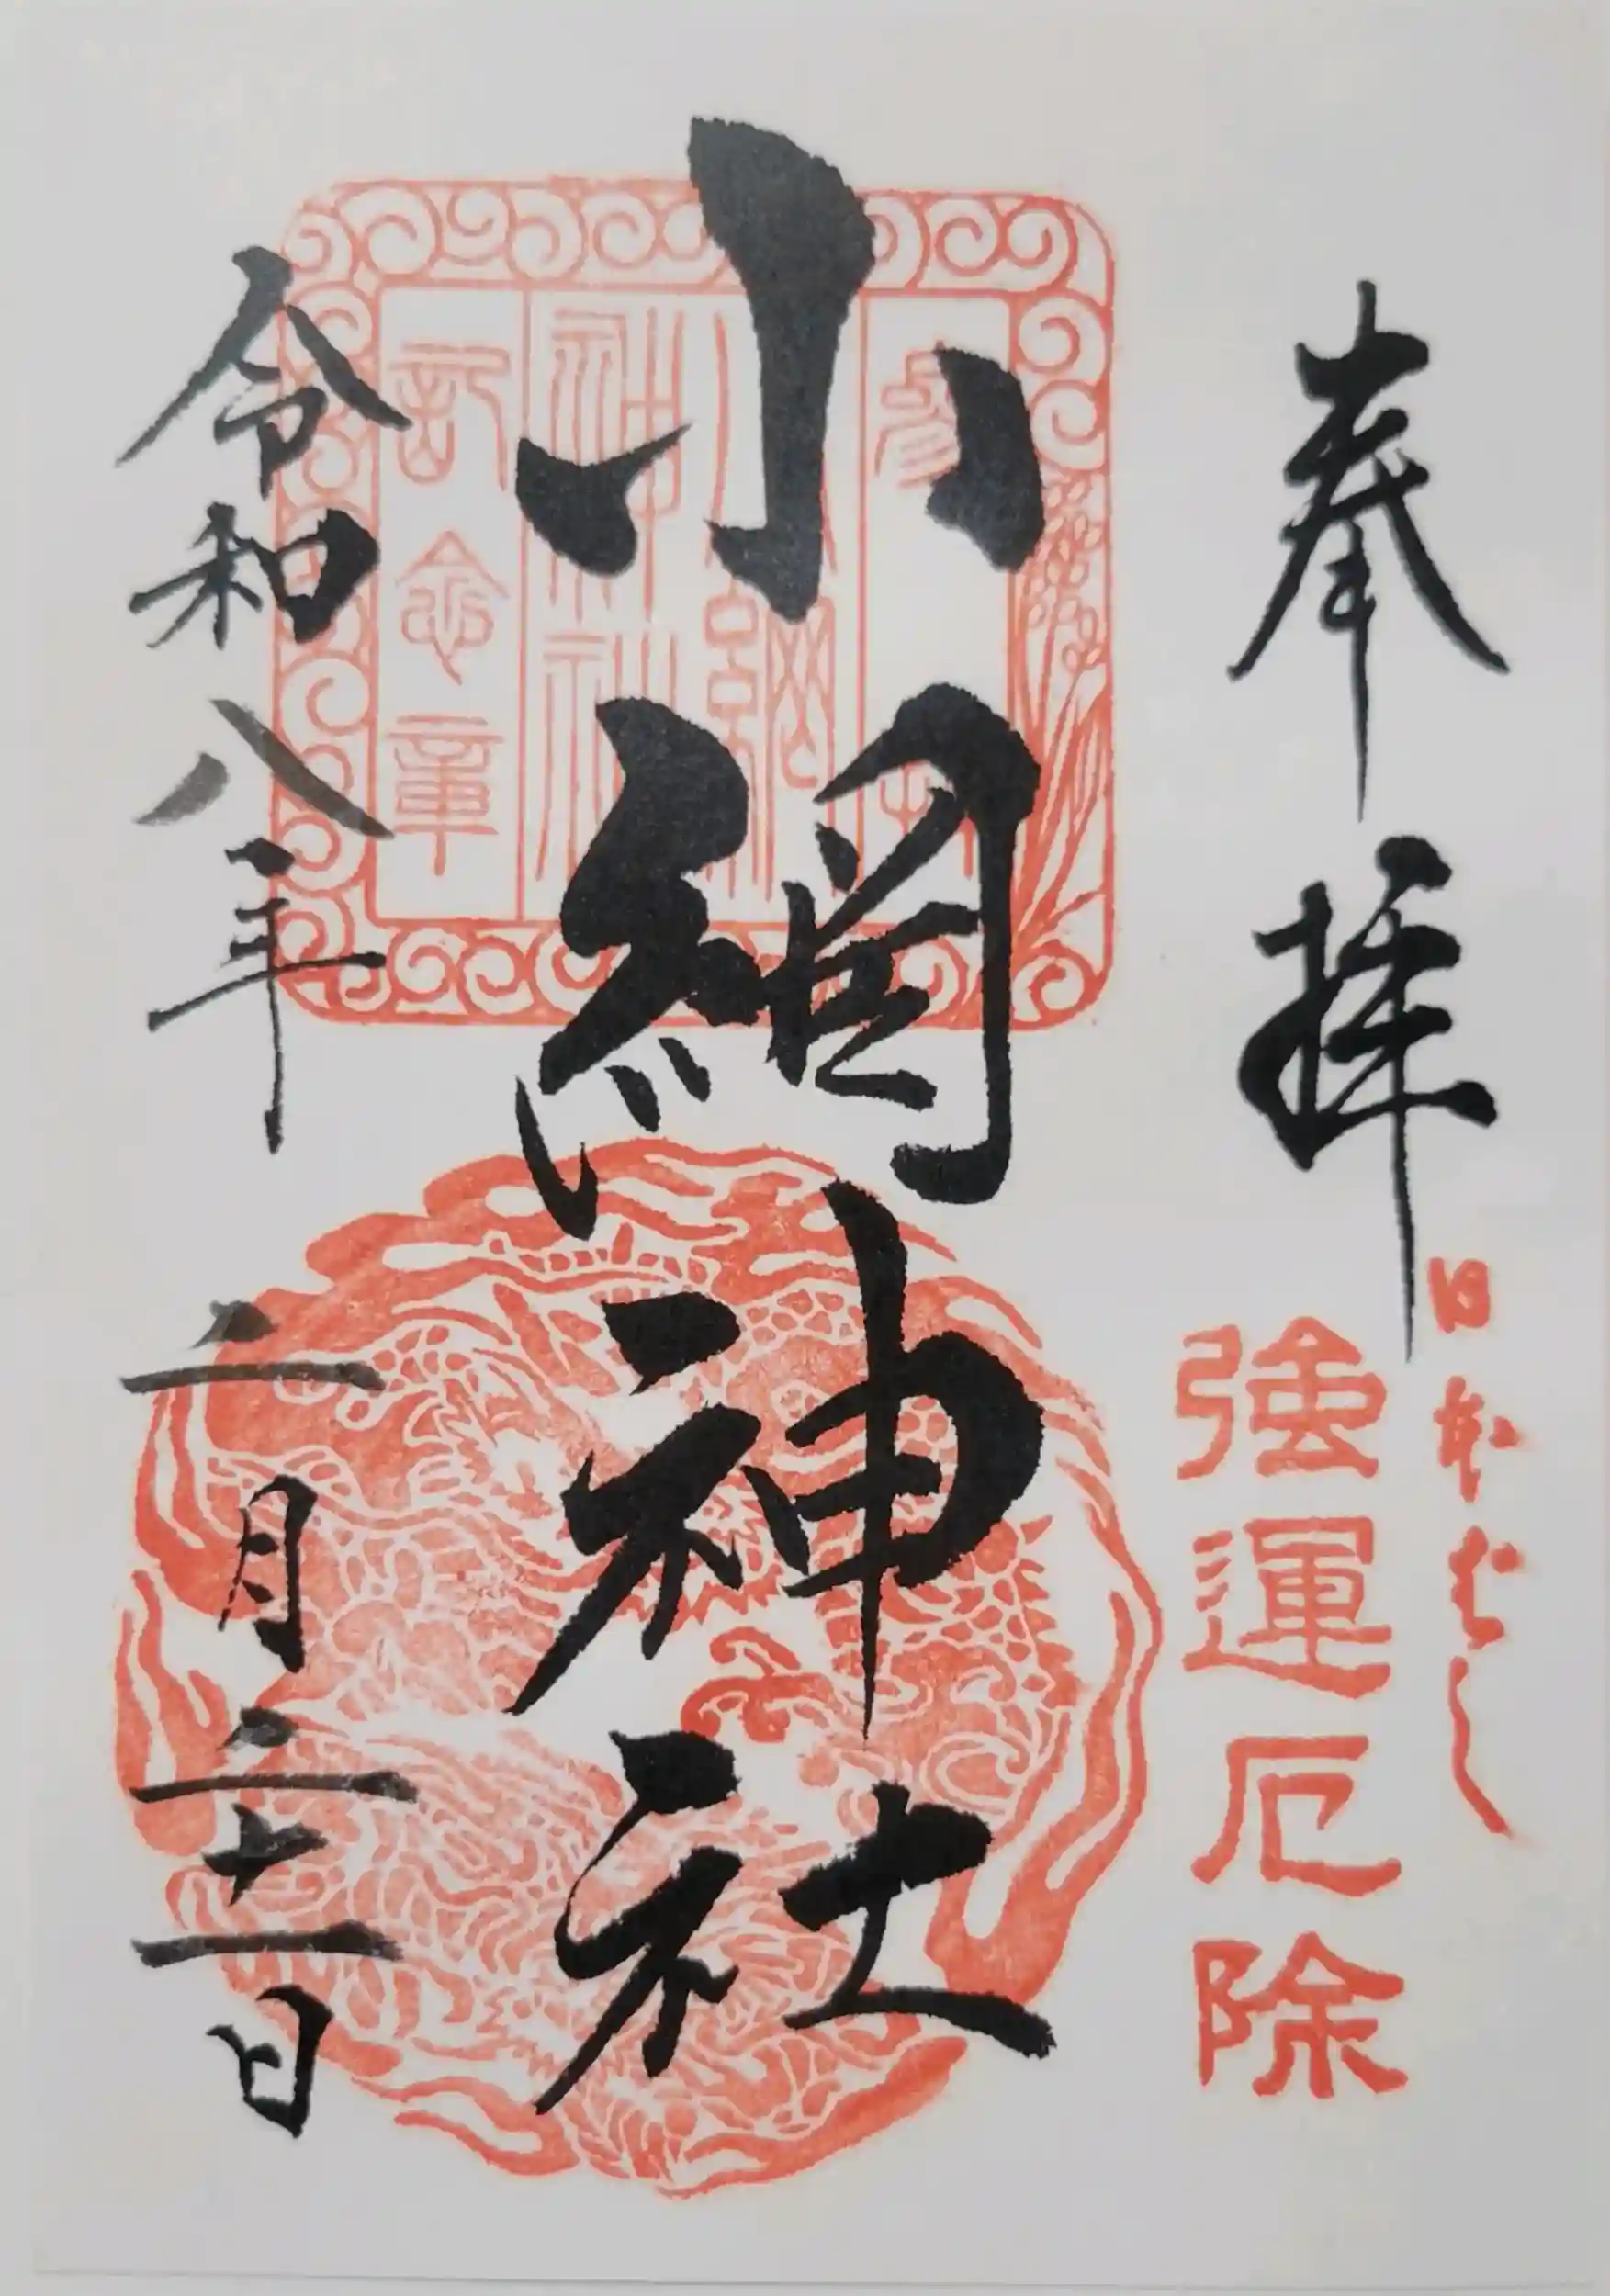 奉拝
日本ばし
強運厄除
小網神社
参拝
小網
神社
記念章
令和八年二月二十二日